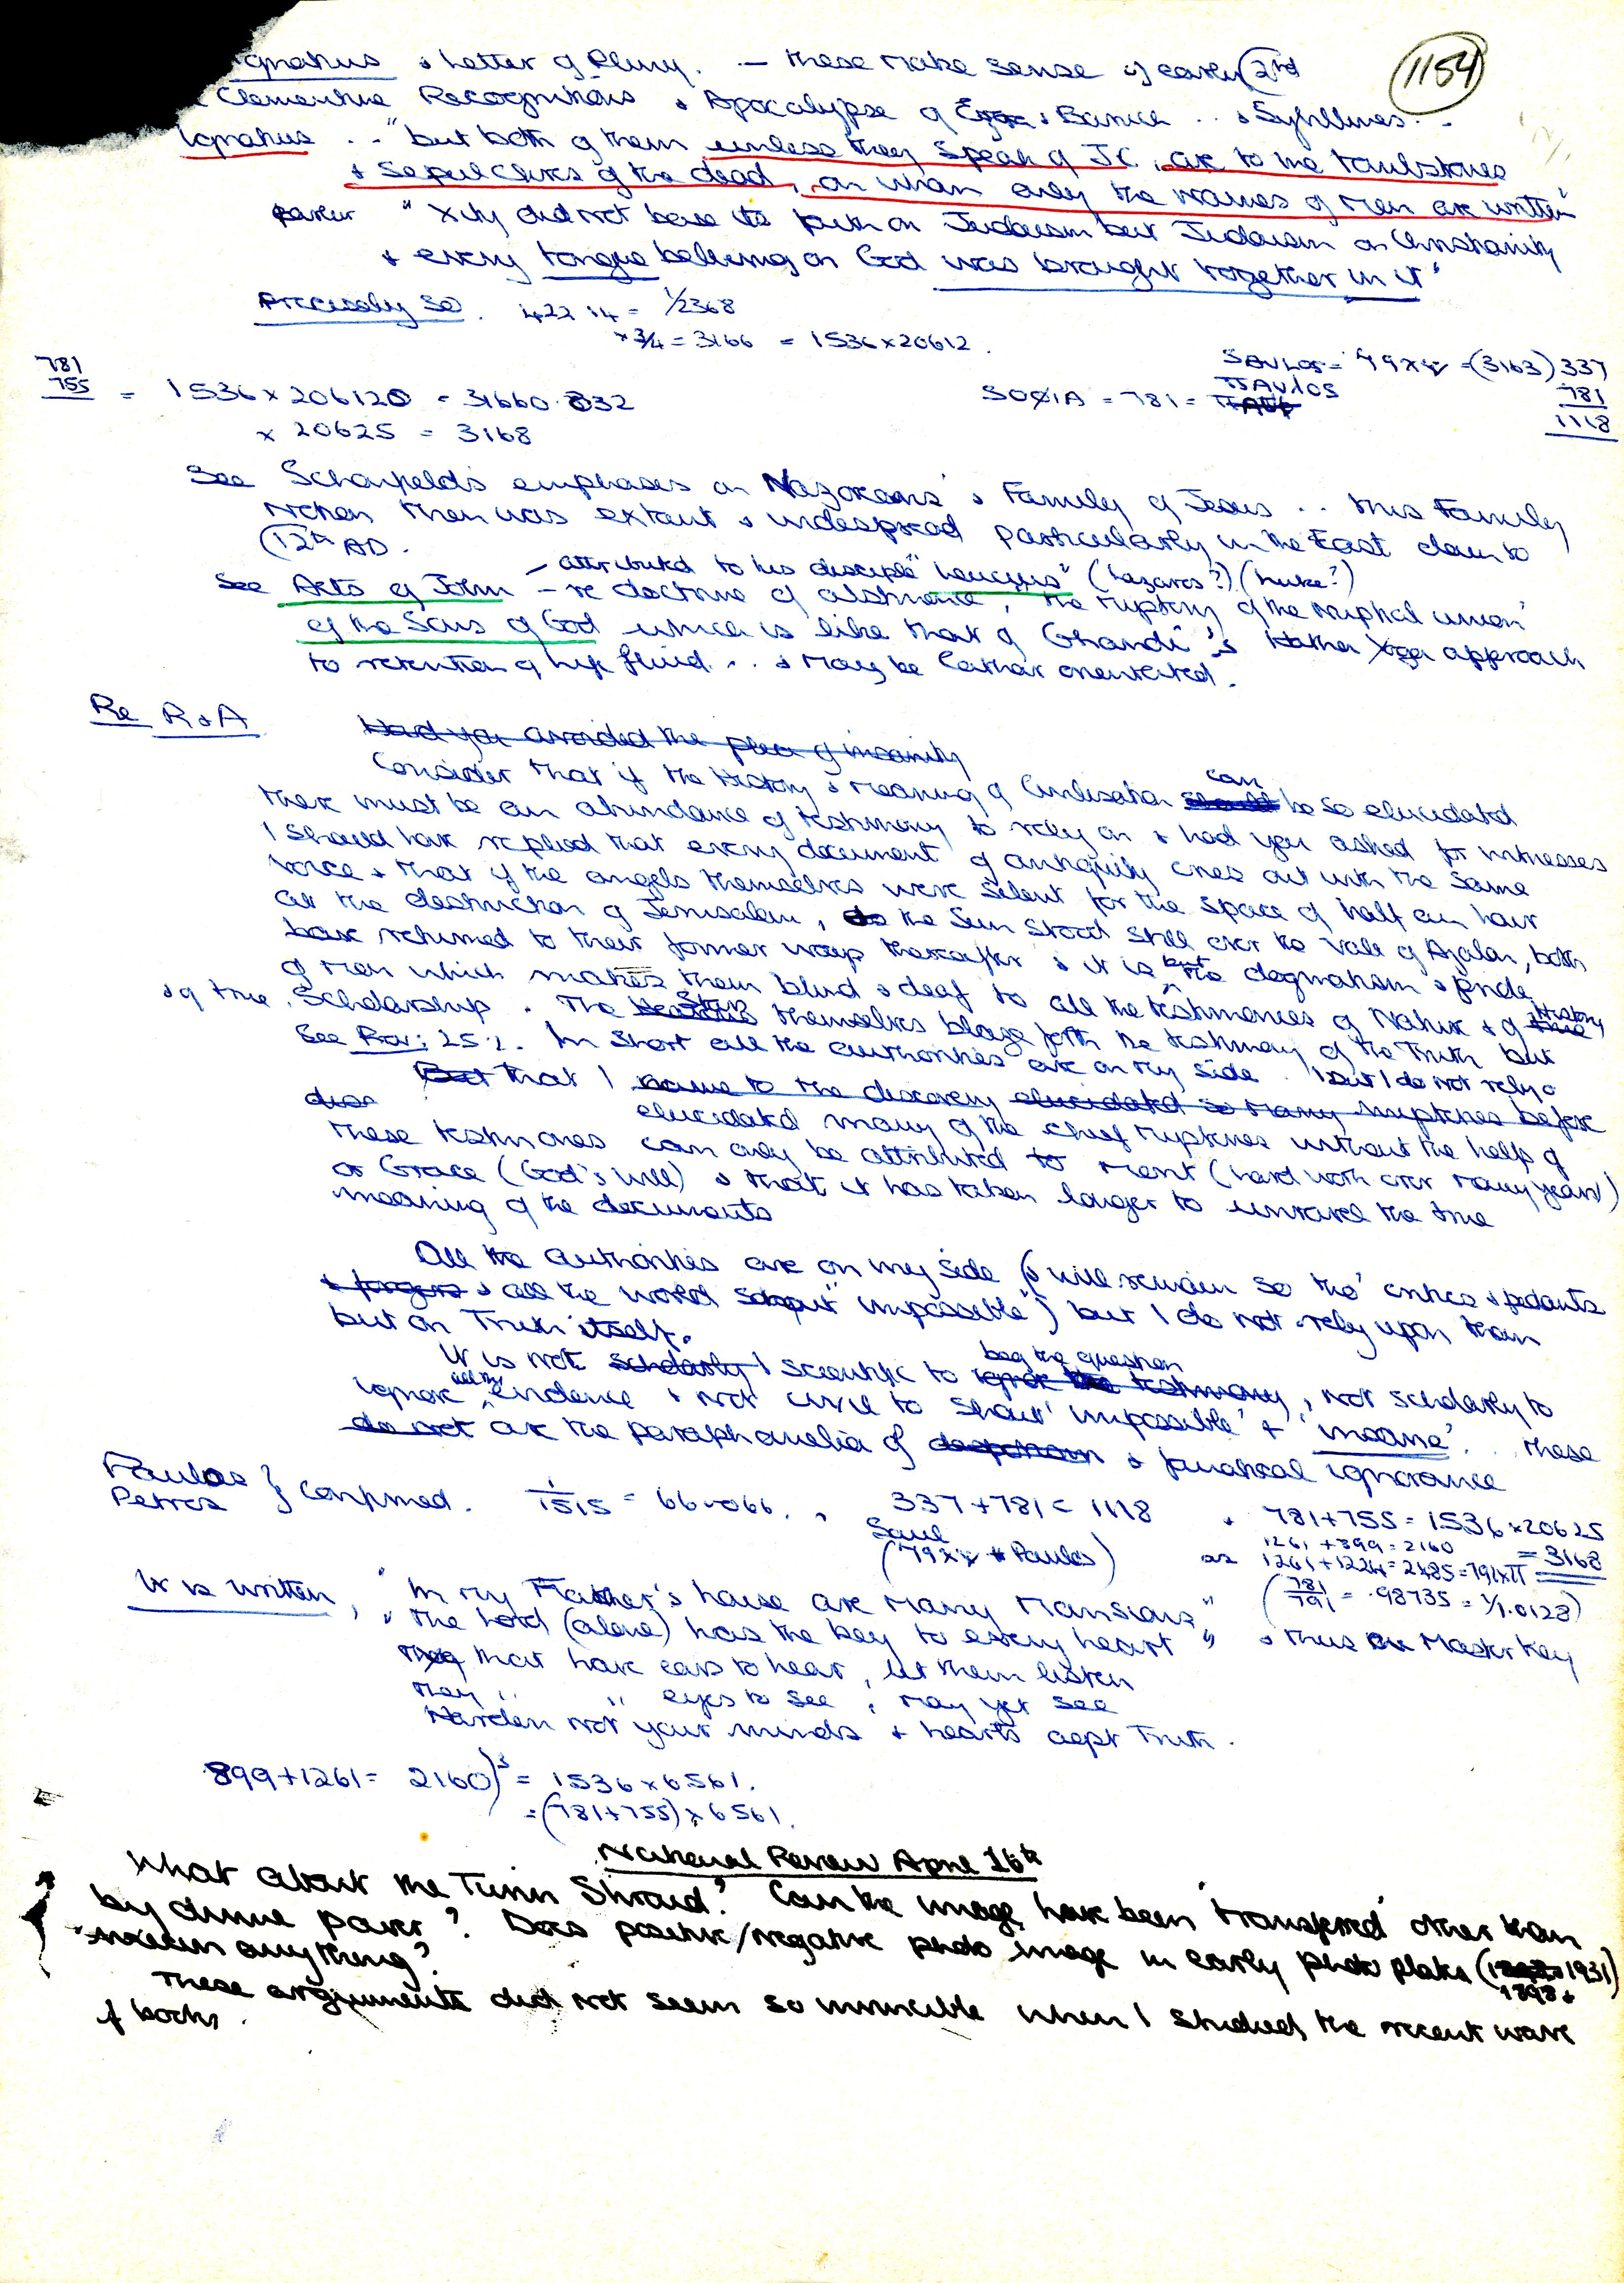 1154
Ignatius & Letter of Pliny. – these make sense of early 2nd
Clementine Recognitions & Apocalypse of & Baruch .. & Sybillines..
Ignatius .. "but both of them unless they speak of J.C. are to me tombstones
& sepulchres of the dead, on whom only the names of men are written"
earlier " Xity did not base its faith on Judaism but Judaism on Christianity
& every tongue believing on God was brought together in it"
Precisely so. 422 14 = 1/2368
× 3/4 = 3166 = 1536 × 20612.
SAULOS = (3163) 337
781
755 = 1536 × 206120 = 31660.832
SOφIA = 781 = ΠAULOS
781
1118
× 20625 = 3168
See Schonfield's emphases on Nazoreans & Family of Jesus .. this Family
notion then was extant & widespread particularly in the East down to
12th AD.
– attributed to his disciple "Leucius" (Lazarus?) (Luke?)
See Acts of John – re doctrine of abstinence, 'the mystery of the nuptial union'
of the Sons of God which is like that of Ghandi's Hatha Yoga approach
to retention of life fluid.. & may be Cathar orientated.
Re R & A
Had you avoided the plea of insanity
Consider that if the History & meaning of Civilisation should can be so elucidated
there must be an abundance of testimony to rely on & had you asked for witnesses
I should have replied that every document of antiquity cries out with the same
voice & that if the angels themselves were silent for the space of half an hour
at the destruction of Jerusalem, the Sun stood still over the Vale of Ajalon, both
have returned to their former ways thereafter & it is but the dogmatism & pride
of men which makes them blind & deaf to all the testimonies of Nature & of History
& of true Scholarship. The Stars themselves blaze forth the testimony of the Truth but
See Prov: 25:2. In short all the authorities are on my side. but I do not rely o
But that I came to the discovery elucidated so many mysteries before
elucidated many of the chief mysteries without the help of
these testimonies can only be attributed to merit (hard work over many years)
or Grace (God's will) & that it has taken longer to unravel the true
meaning of the documents
All the authorities are on my side (& will remain so tho' critics & pedants
& forgers & all the world shout "impossible") but I do not rely upon them
but on Truth itself.
It is not scholarly scientific to beg the question, not scholarly to
ignore all the evidence & not civil to shout 'impossible' & 'insane'.. These
do not are the paraphanelia of despotism & fanatical ignorance
Paulos
Petros } Confirmed. 1/1515 = 66.066. , 337 + 781 = 1118 & 781 + 755 = 1536 × 20625
= 3168
Saul
( + Paulos)
1261 + 899 = 2160
as 1261 + 1224 = 2485 = 791 × π
(781/791 = .98735 = 1/1.0128)
It is written, "In my Father's house are many Mansions"
"The Lord (alone) has the key to every heart" & thus the Master Key
They that have ears to hear, let them listen
They " " eyes to see, may yet see
Harden not your minds & hearts agst Truth.
899 + 1261 = 2160)³ = 1536 × 6561.
= (781 + 755) × 6561.
National Review April 16th
What about the Turin Shroud? Can the image have been 'transferred' other than
by divine power? Does positive/negative photo image in early photo plates (1898 & 1931)
mean anything?
These arguments did not seem so invincible when I studied the recent wave
of books.